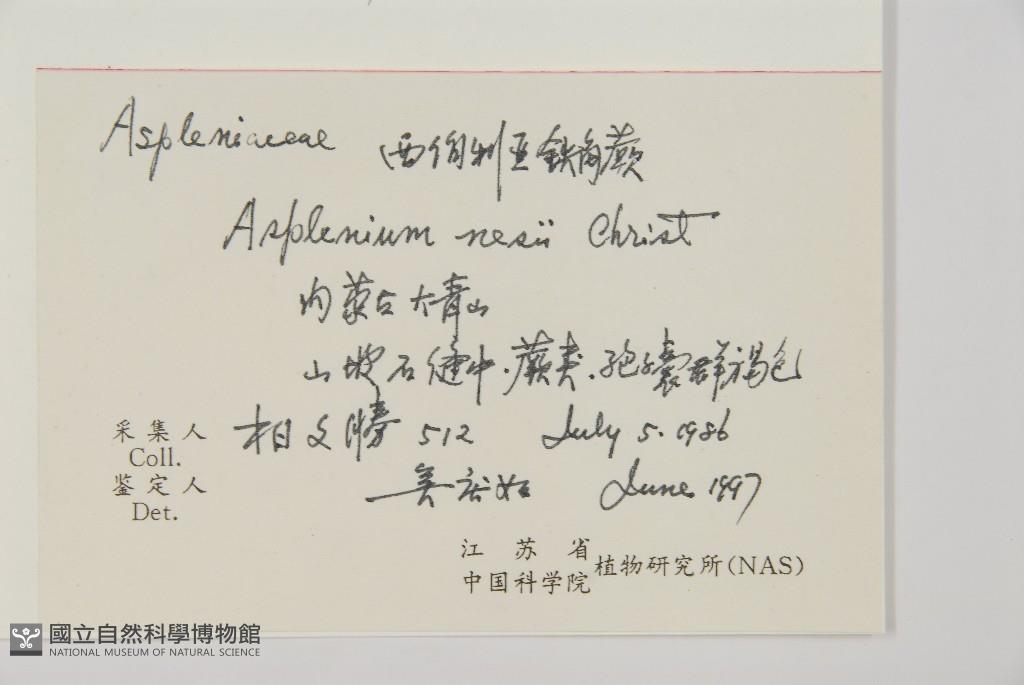 Aspleniaceae 西伯利亚铁角蕨
Asplenium nesii Christ
内蒙古大青山
山坡石缝中.蕨类.孢子囊群褐色
采集人 Coll. 相文勝 512 July 5. 1986
鉴定人 Det. June 1997
江苏省
中国科学院 植物研究所(NAS)
國立自然科學博物館
NATIONAL MUSEUM OF NATURAL SCIENCE